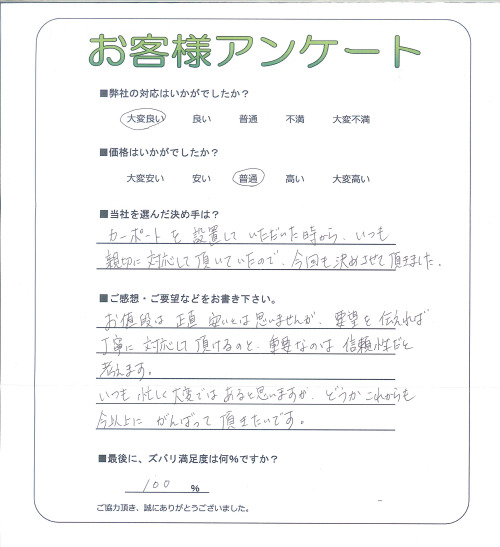 お客様アンケート
■弊社の対応はいかがでしたか？
大変良い 良い 普通 不満 大変不満
■価格はいかがでしたか？
大変安い 安い 普通 高い 大変高い
■当社を選んだ決め手は？
カーポートを設置していただいた時から、いつも
親切に対応して頂いていたので、今回も決めさせて頂きました。
■ご感想・ご要望などをお書き下さい。
お値段は正直安いとは思いませんが、要望を伝えれば
丁寧に対応して頂けるのと、重要なのは信頼性だと
考えます。
いつも忙しく大変ではあると思いますが、どうかこれからも
今以上にがんばって頂きたいです。
■最後に、ズバリ満足度は何%ですか？
100 %
ご協力頂き、誠にありがとうございました。